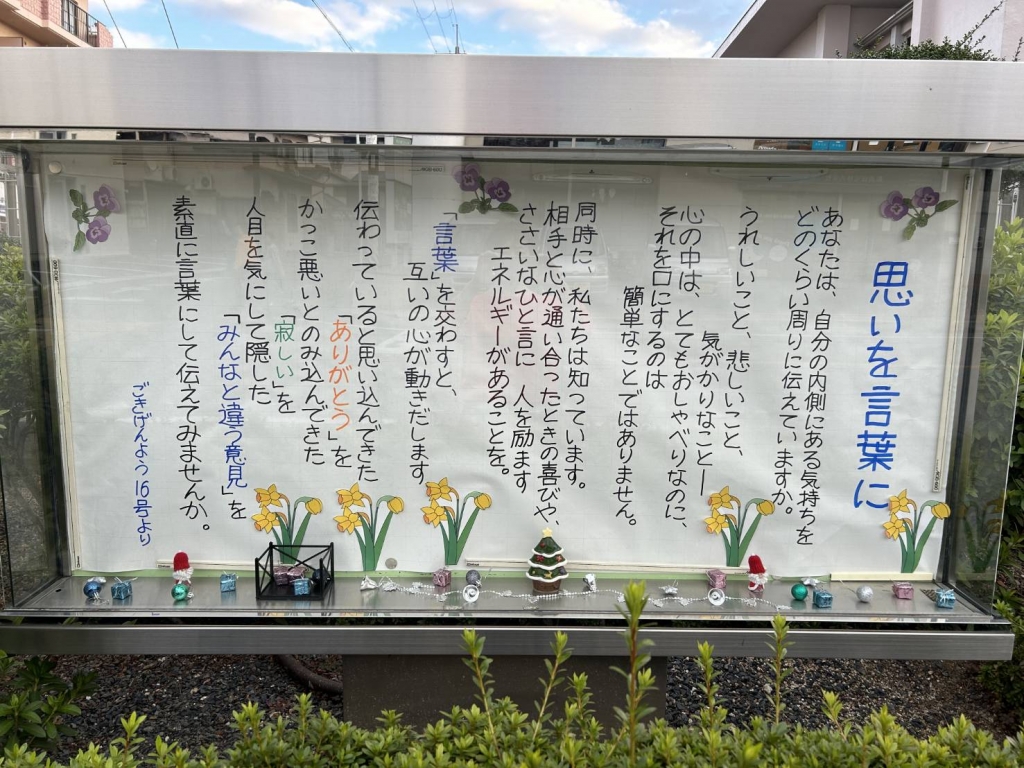 思いを言葉に
あなたは、自分の内側にある気持ちを
どのくらい周りに伝えていますか。
うれしいこと、悲しいこと、
気がかりなこと―
心の中は、とてもおしゃべりなのに、
それを口にするのは
簡単なことではありません。
同時に、私たちは知っています。
相手と心が通い合ったときの喜びや、
ささいなひと言に 人を励ます
エネルギーがあることを。
「言葉」を交わすと、
互いの心が動きだします
伝わっていると思い込んできた
「ありがとう」を
かっこ悪いとのみ込んできた
「寂しい」を
人目を気にして隠した
「みんなと違う意見」を
素直に言葉にして伝えてみませんか。
ごきげんよう16号より